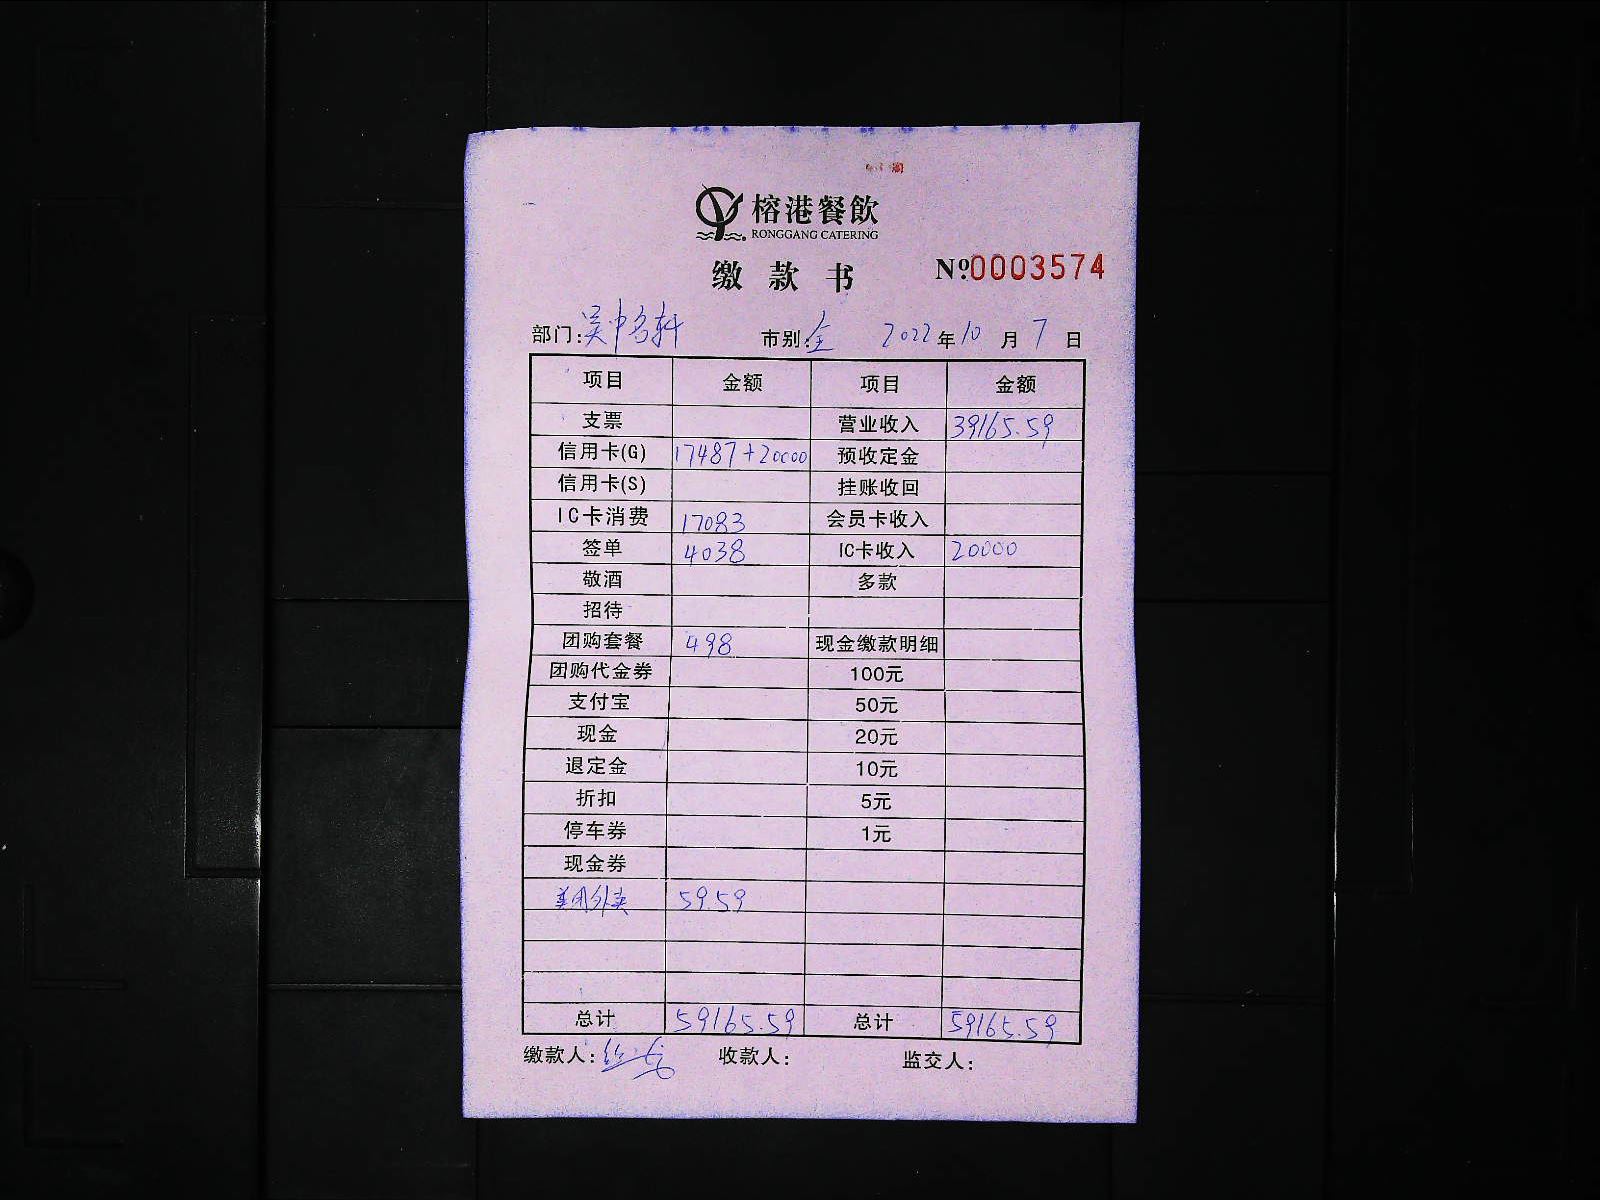 榕港餐飲
RONGGANG CATERING
缴款书 Nº0003574
部门:吴中名轩 市别:全 2022年10月7日
项目 金额 项目 金额
支票 营业收入 39165.59
信用卡(G) 17487+20000 预收定金
信用卡(S) 挂账收回
IC卡消费 17083 会员卡收入
签单 4038 IC卡收入 20000
敬酒 多款
招待
团购套餐 498 现金缴款明细
团购代金券 100元
支付宝 50元
现金 20元
退定金 10元
折扣 5元
停车券 1元
现金券
美团外卖 59.59
总计 59165.59 总计 59165.59
缴款人: 收款人: 监交人: